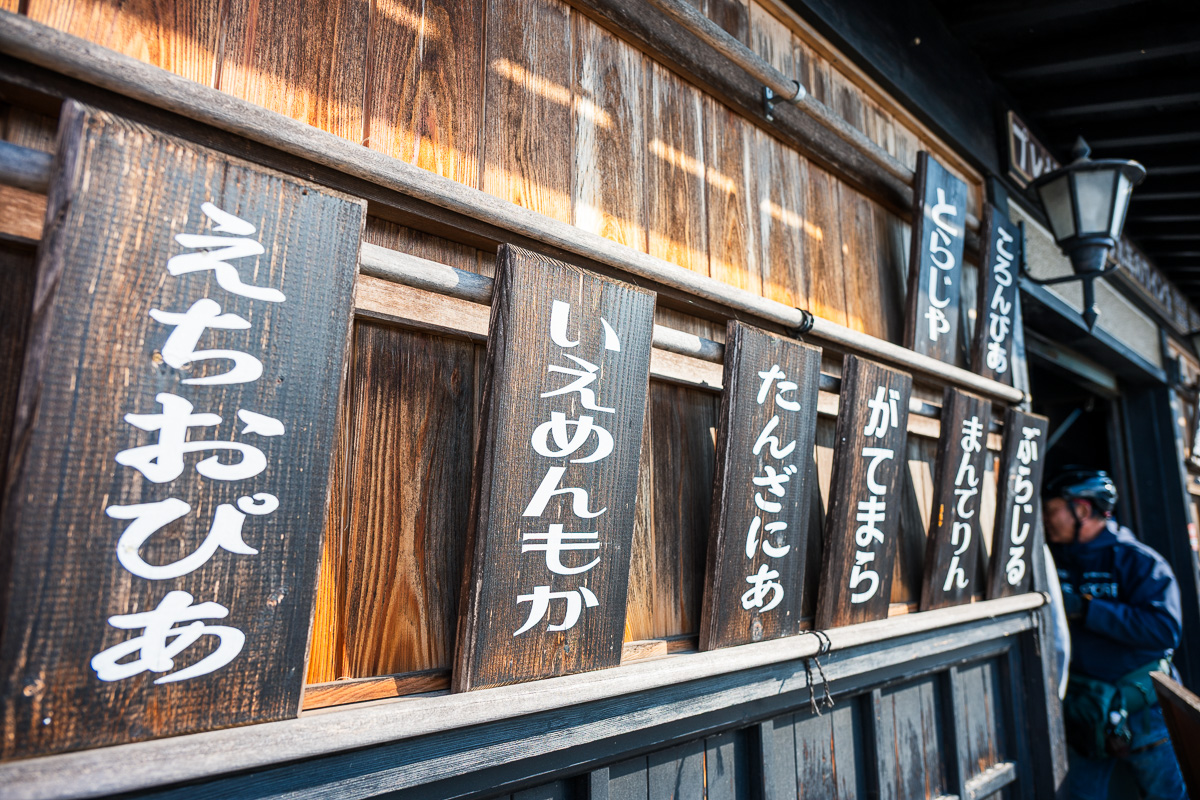 えちおぴあ
いえめんもか
たんざにあ
がてまら
まんでりん
ぶらじる
とらじや
ころんびあ